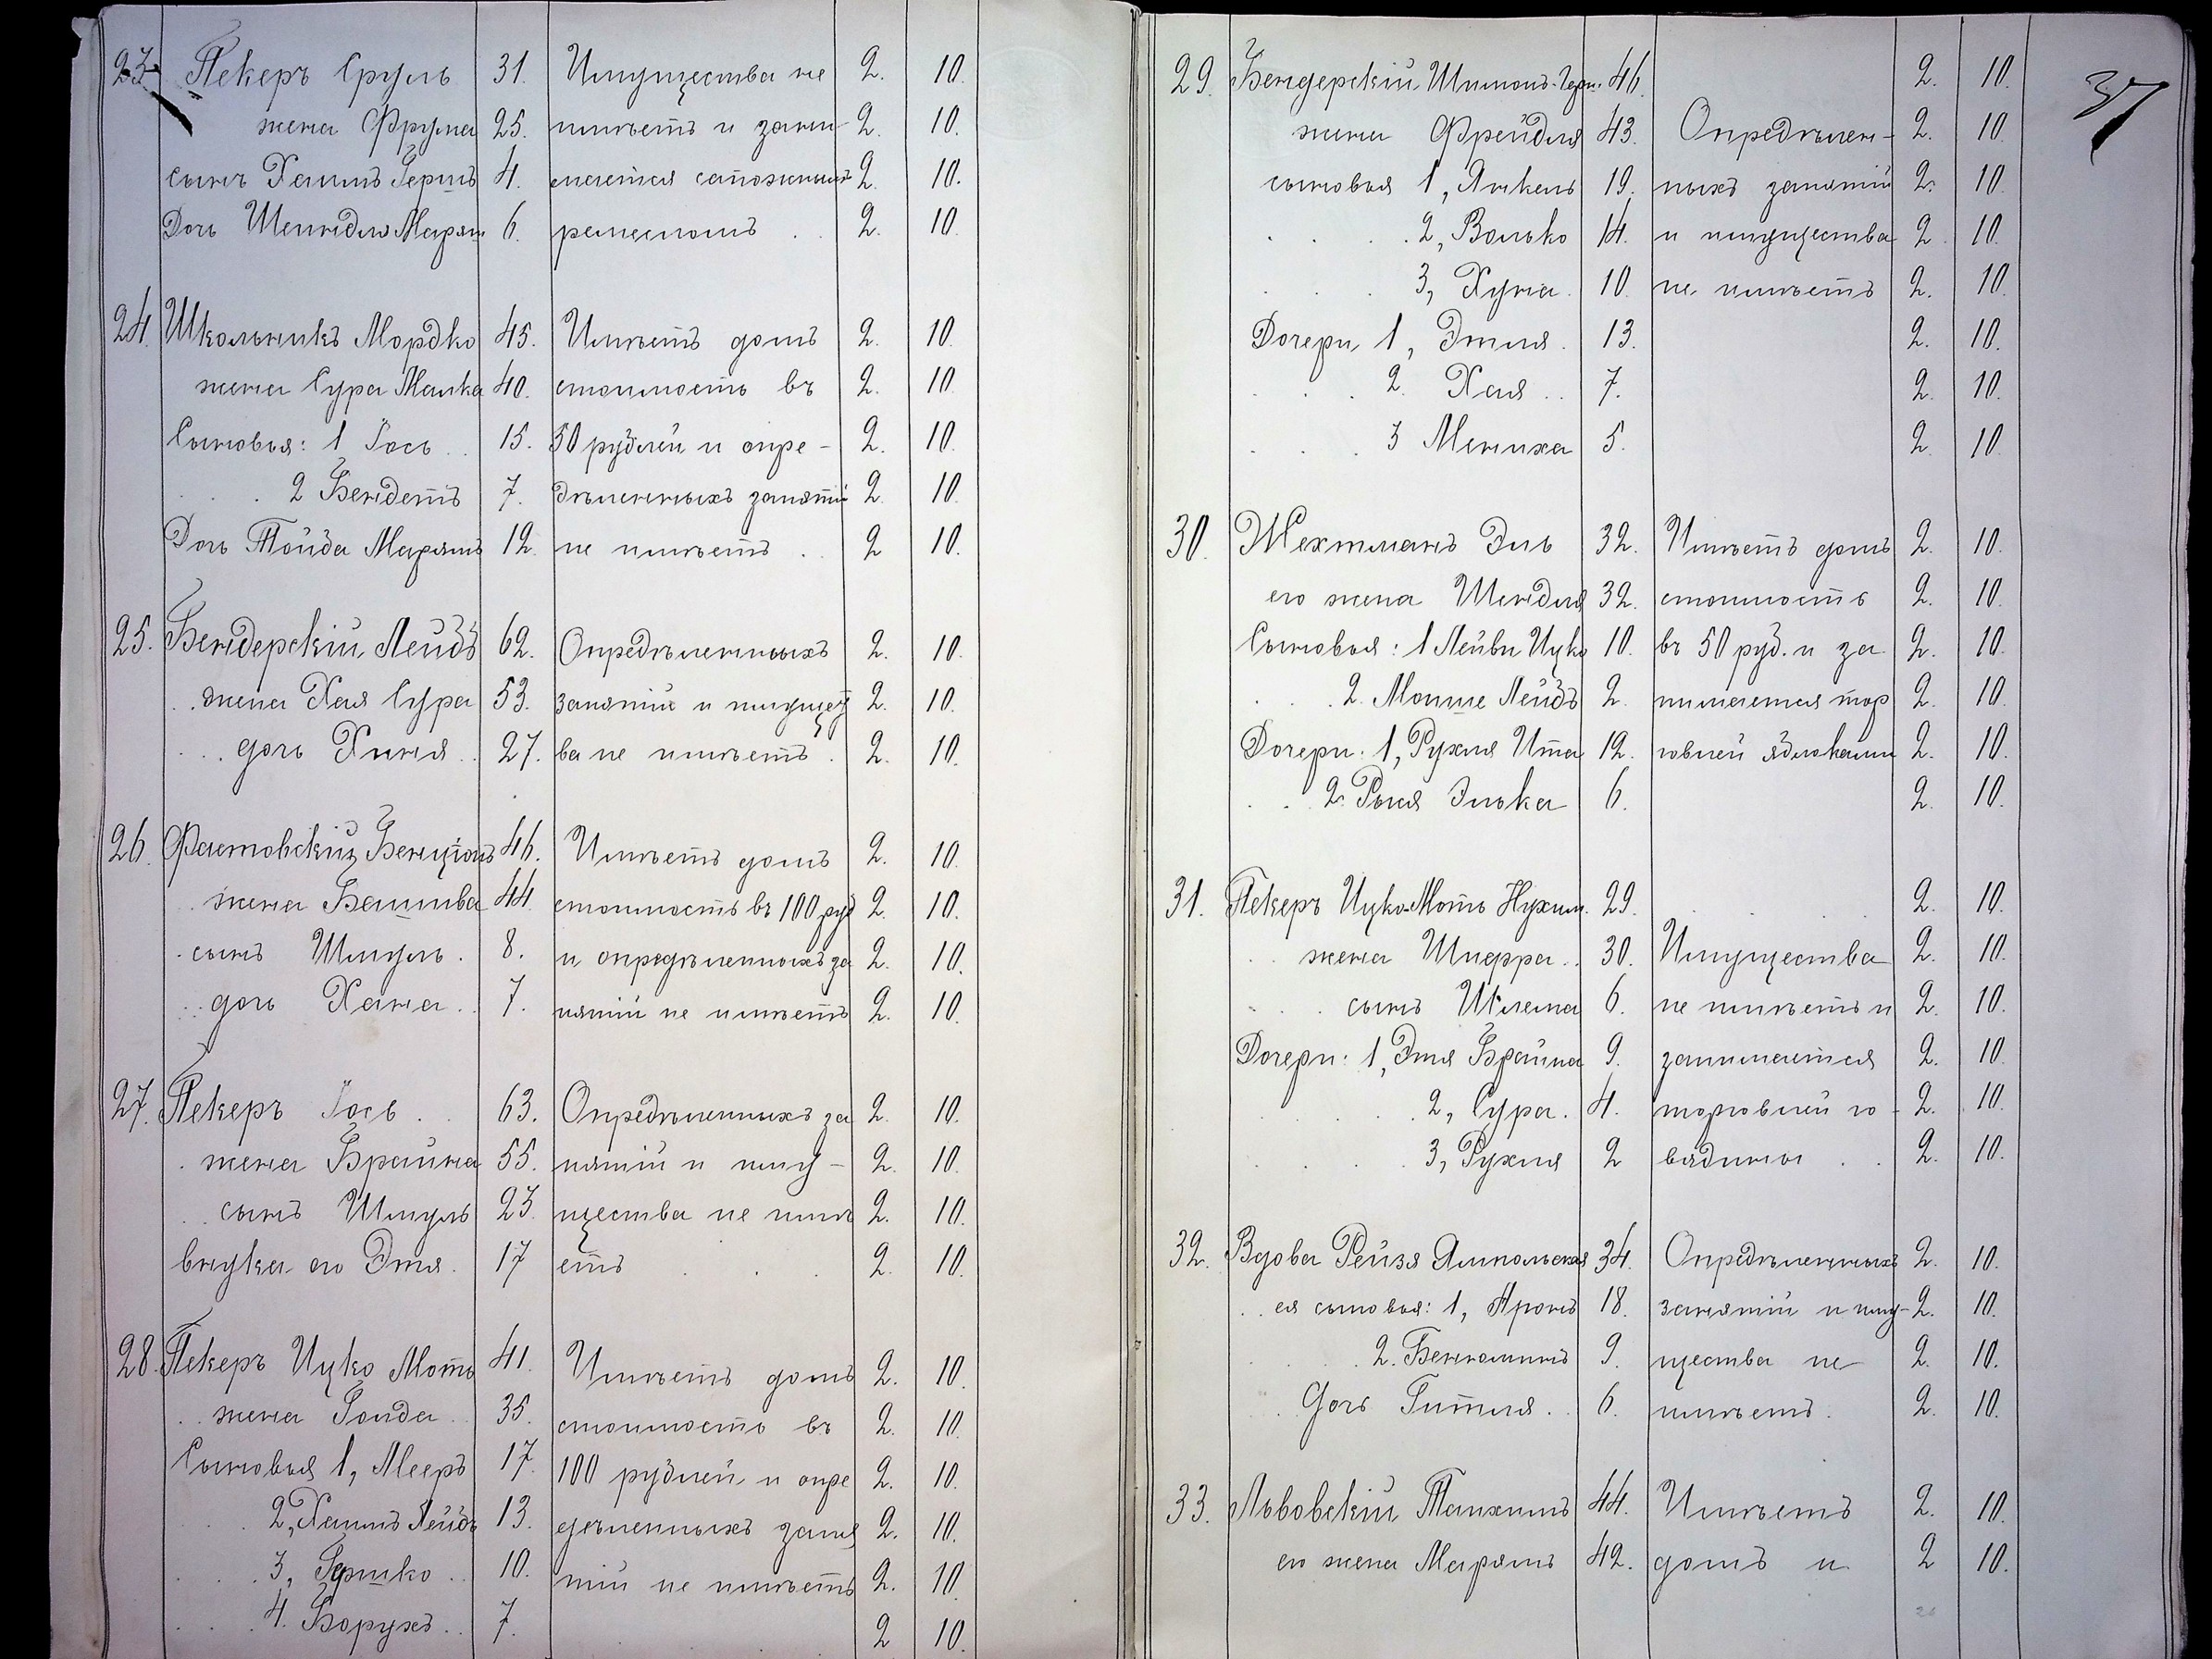 23. Пекеръ Сруль 31. Имущества не 2. 10.
жена Фрума 25. имѣетъ и зани- 2. 10.
сынъ Хаимъ Гершъ 4. мается сапожнымъ 2. 10.
Дочь Шейндля Марям 6. ремесломъ . . 2. 10.
24. Школьникъ Мордко 45. Имѣетъ домъ 2. 10.
жена Сура Малка 40. стоимость въ 2. 10.
Сыновья: 1 Іось . . 15. 50 рублей и опре- 2. 10.
. . . 2 Бендетъ 7. дѣленныхъ занятій 2. 10.
Дочь Тойба Марямъ 12. не имѣетъ . . 2 10.
25. Бендерскій Лейбъ 62. Опредѣленныхъ 2. 10.
. . жена Хая Сура 53. занятій и имущест 2. 10.
. . дочь Хиня . . 27. ва не имѣетъ . 2. 10.
26. Фастовскій Бенціонъ 46. Имѣетъ домъ 2. 10.
жена Башива 44. стоимость въ 100 руб 2. 10.
. сынъ Шмуль . 8. и опредѣленныхъ за 2. 10.
. . дочь Хана . . 7. нятій не имѣетъ 2. 10.
27. Пекеръ Іось . . 63. Опредѣленныхъ за 2. 10.
. жена Брайна 55. нятій и иму- 2. 10.
. . сынъ Шмуль 23. щества не имѣ 2. 10.
внука его Этя . 17 етъ . . . 2. 10.
28. Пекеръ Ицко Моть 41. Имѣетъ домъ 2. 10.
. . жена Гойда . . 35. стоимость въ 2. 10.
Сыновья 1, Мееръ 17. 100 рублей и опре 2. 10.
. . 2, Хаимъ Лейбъ 13. дѣленныхъ заня 2. 10.
. . . 3, Гершко . . 10. тій не имѣетъ 2. 10.
. . . 4. Борухъ . . 7. 2 10.
37
29. Бендерскій Шимонъ-Герш. 46. 2. 10.
жена Фрейдля 43. Опредѣлен- 2. 10.
сыновья 1, Янкель 19. ныхъ занятій 2. 10.
. . . . 2, Волько 14. и имущества 2. 10.
. . . 3, Хуна . 10. не имѣетъ 2. 10.
Дочери 1, Этля . 13. 2. 10.
. . . 2. Хая . . 7. 2. 10.
. . . 3 Мениха 5. 2. 10.
30. Шехтманъ Эль 32. Имѣетъ домъ 2. 10.
его жена Шендля 32. стоимость 2. 10.
Сыновья: 1 Лейви Ицко 10. въ 50 руб. и за 2. 10.
. . . 2. Моише Лейбъ 2. нимается тор 2. 10.
Дочери: 1, Рухля Ита 12. говлей яблоками 2. 10.
. . 2. Рыся Элька 6. 2. 10.
31. Пекеръ Ицко-Моть Нухим. 29. . . . 2. 10.
. . жена Шифра . . 30. Имущества 2. 10.
. . . сынъ Шлема 6. не имѣетъ и 2. 10.
Дочери: 1, Этя Брайна 9. занимается 2. 10.
. . . . 2, Сура . 4. торговлей го- 2. 10.
. . . . 3, Рухля 2 вядины . . 2. 10.
32. Вдова Рейзя Ямпольская 34. Опредѣленныхъ 2. 10.
. . ея сыновья: 1, Аронъ 18. занятій и иму- 2. 10.
. . . 2. Беньоминъ 9. щества не 2. 10.
. Дочь Гитля . . 6. имѣетъ . 2. 10.
33. Львовскій Танхимъ 44. Имѣетъ 2. 10.
его жена Марямъ 42. домъ и 2 10.